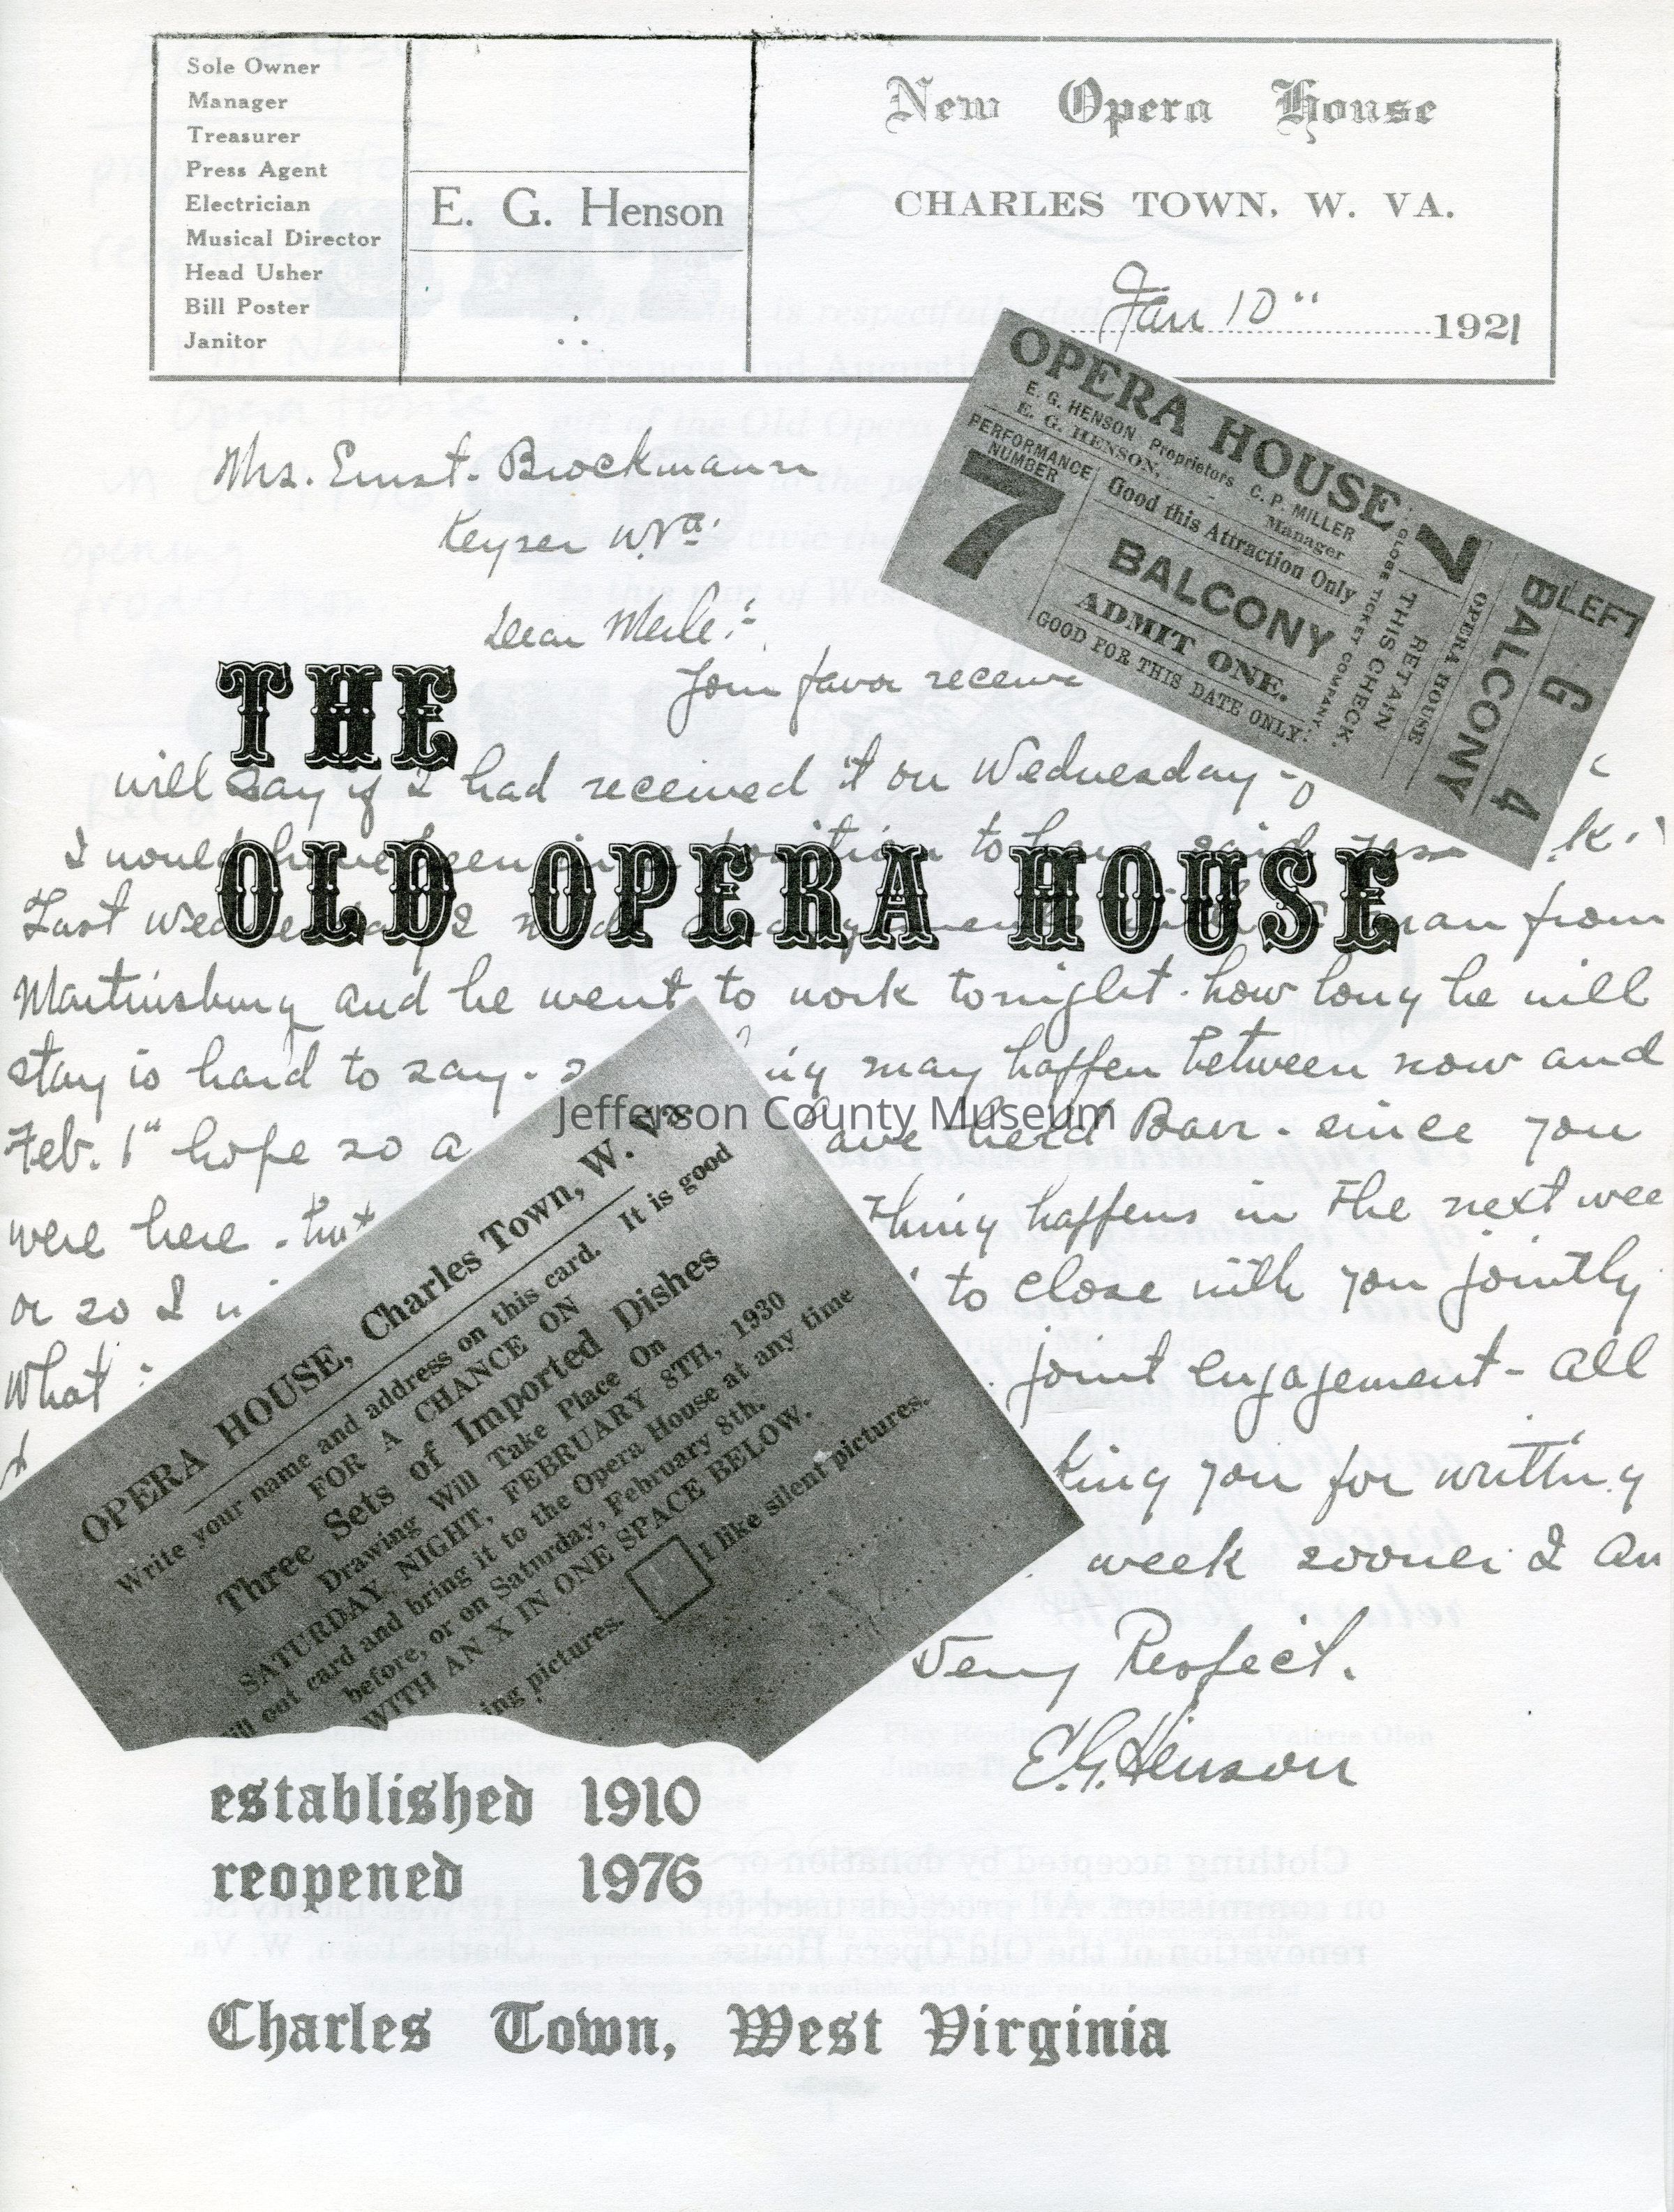 Sole Owner
Manager
Treasurer
Press Agent
Electrician
Musical Director
Head Usher
Bill Poster
Janitor
E. G. Henson
New Opera House
CHARLES TOWN, W. VA.
Jan 10" 1921
OPERA HOUSE
E. G. HENSON Proprietors C. P. MILLER
E. G. HENSON, Manager
PERFORMANCE NUMBER
7
Good this Attraction Only
BALCONY
ADMIT ONE.
GOOD FOR THIS DATE ONLY.
GLOBE TICKET COMPANY.
7
RETAIN
THIS CHECK.
OPERA HOUSE
BALCONY
LEFT
G 4
Mrs. Ernst. Brockmann
Keyser W.Va.
Dear Merle:-
Your favor receive
THE
will say if I had received it on Wednesday
OLD OPERA HOUSE
I would have been in a position to have said
Last man from
Martinsburg and he went to work tonight. how long he will
stay is hard to say. may happen between now and
Feb. 1" hope so a ave herd Barr. since you
were here. but thing happens in the next wee
or so I to close with you jointly
what joint engagement - all
king you for writting
week sooner I am
Very Respect.
E.G. Henson
OPERA HOUSE, Charles Town, W. Va.
Write your name and address on this card. It is good
FOR A CHANCE ON
Three Sets of Imported Dishes
Drawing Will Take Place On
SATURDAY, NIGHT, FEBRUARY 8TH, 1930
ill out card and bring it to the Opera House at any time
before, or on Saturday, February 8th.
WITH AN X IN ONE SPACE BELOW.
ing pictures. I like silent pictures.
Jefferson County Museum
established 1910
reopened 1976
Charles Town, West Virginia